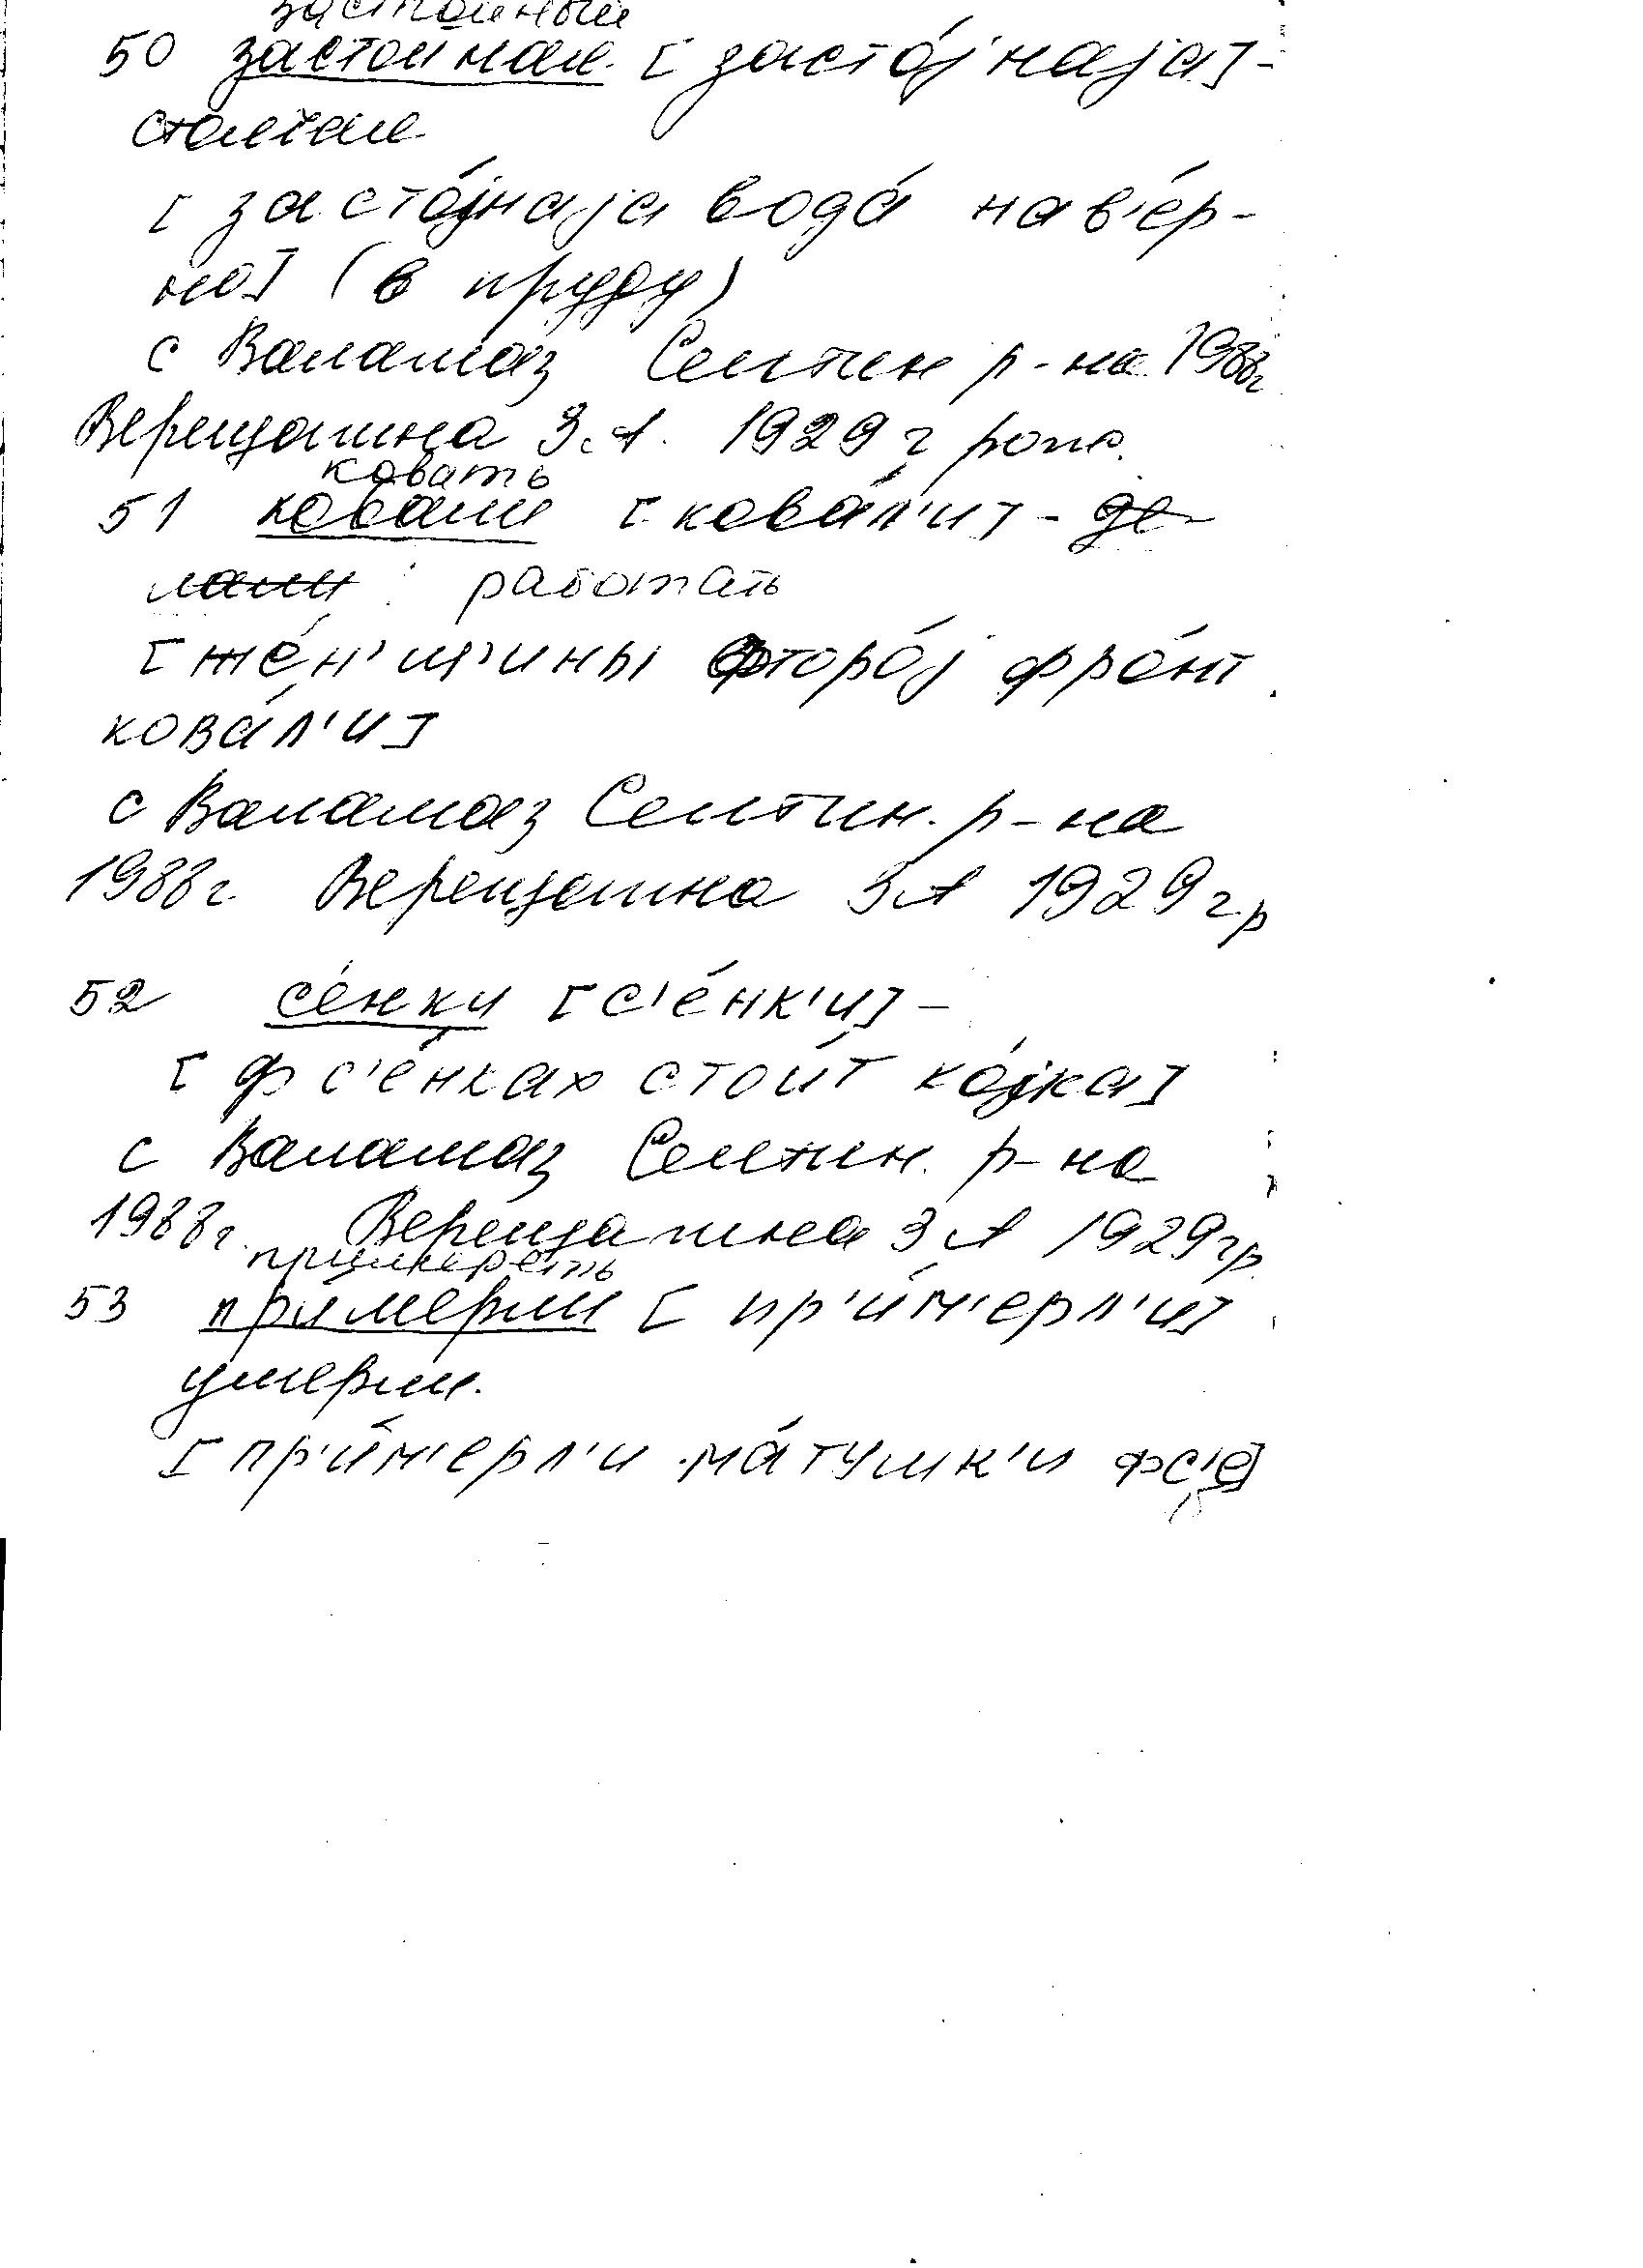 застойный
50 застойная [застójнаjа]-
стоячая
[застójнаjа водá нав'éр-
но] (в пруду)
с Валамаз Селтин р-на 1988г
Верещагина З.А. 1929 г рожд.
ковать
51 ковали [ковáл'и] - де-
лали : работать
[жéн'щ'ины фторój фрóнт
ковáл'и]
с Валамаз Селтин. р-на
1988г. Верещагина З А 1929 г.р
52 сéнки [с'éнк'и] -
[ф с'éнках стоит кójка]
с Валамаз Селтин. р-на
1988г. Верещагина З А 1929 гр.
примереть
53 примерли [пр'и́м'ерл'и]
умерли.
[пр'и́м'ерл'и мáтушк'и фс'е]